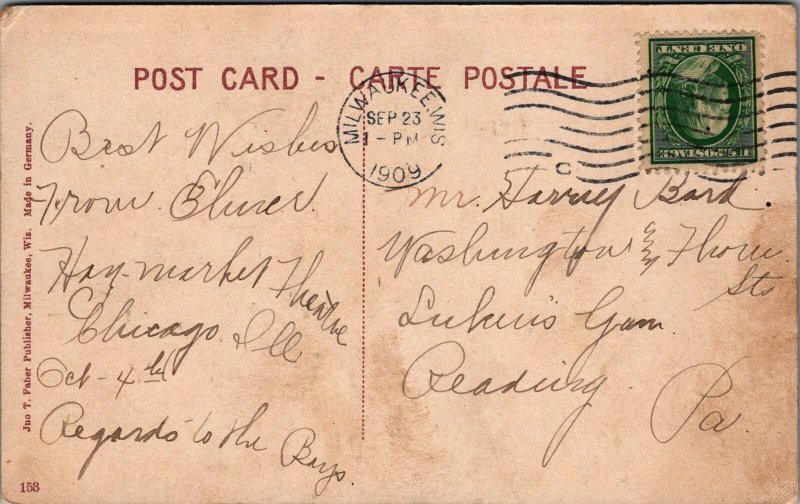 POST CARD - CARTE POSTALE
MILWAUKEE, WIS.
SEP 23
1-PM
1909
ONE CENT
U.S. POSTAGE
Best Wishes
From Elmer.
Hay-market Theatre
Chicago. Ill
Oct - 4th
Regards to the Boys.
Mr. Harvey Bard
Washington & Thorn
Sts
Gym
Reading.
Pa.
Jno T. Faber Publisher, Milwaukee, Wis. Made in Germany.
153